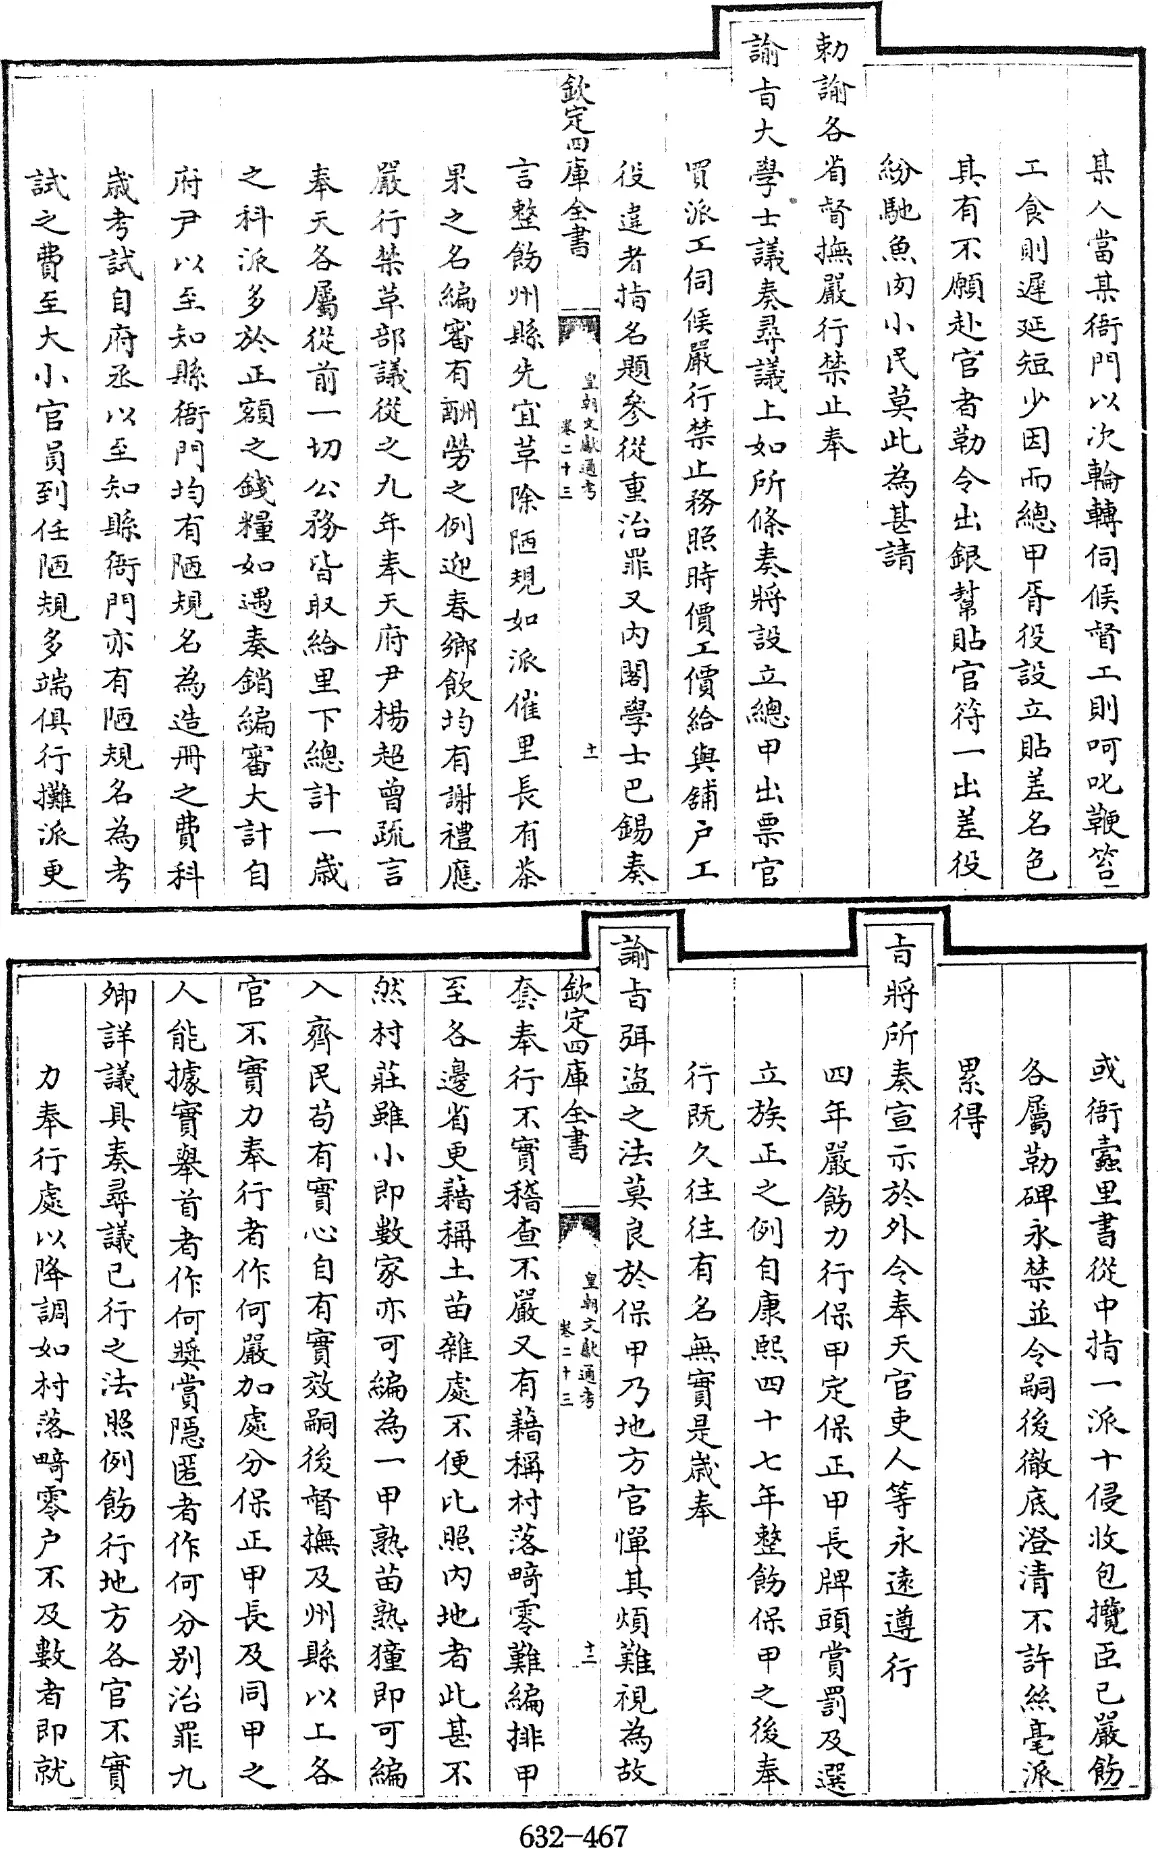 某人當某衙門以次輪轉伺候督工則呵叱鞭笞
工食則遲延短少因而總甲胥役設立貼差名色
其有不願赴官者勒令出銀幫貼官符一出差役
紛馳魚肉小民莫此為甚請
勅諭各省督撫嚴行禁止奉
諭㫖大學士議奏尋議上如所條奏將設立總甲出票官
買派工伺候嚴行禁止務照時價工價給與舖户工
役違者指名題參從重治罪又內閣學士巴錫奏
欽定四庫全書
皇朝文獻通考
卷二十三
十一
言整飭州縣先宜革除陋規如派催里長有茶
果之名編審有酬勞之例迎春鄉飲均有謝禮應
嚴行禁革部議從之九年奉天府尹楊超曾疏言
奉天各屬從前一切公務皆取給里下總計一歲
之科派多於正額之錢糧如遇奏銷編審大計自
府尹以至知縣衙門均有陋規名為造冊之費科
歲考試自府丞以至知縣衙門亦有陋規名為考
試之費至大小官員到任陋規多端俱行攤派更
或衙蠹里書從中指一派十侵收包攬臣已嚴飭
各屬勒碑永禁並令嗣後徹底澄清不許絲毫派
累得
㫖將所奏宣示於外令奉天官吏人等永遠遵行
四年嚴飭力行保甲定保正甲長牌頭賞罰及選
立族正之例自康熙四十七年整飭保甲之後奉
行既久往往有名無實是歲奉
諭㫖弭盜之法莫良於保甲乃地方官憚其煩難視為故
欽定四庫全書
皇朝文獻通考
卷二十三
十二
套奉行不實稽查不嚴又有藉稱村落畸零難編排甲
至各邊省更藉稱土苗雜處不便比照內地者此甚不
然村莊雖小即數家亦可編為一甲熟苗熟獞即可編
入齊民苟有實心自有實效嗣後督撫及州縣以上各
官不實力奉行者作何嚴加處分保正甲長及同甲之
人能據實舉首者作何獎賞隱匿者作何分別治罪九
卿詳議具奏尋議已行之法照例飭行地方各官不實
力奉行處以降調如村落畸零户不及數者即就
632-467